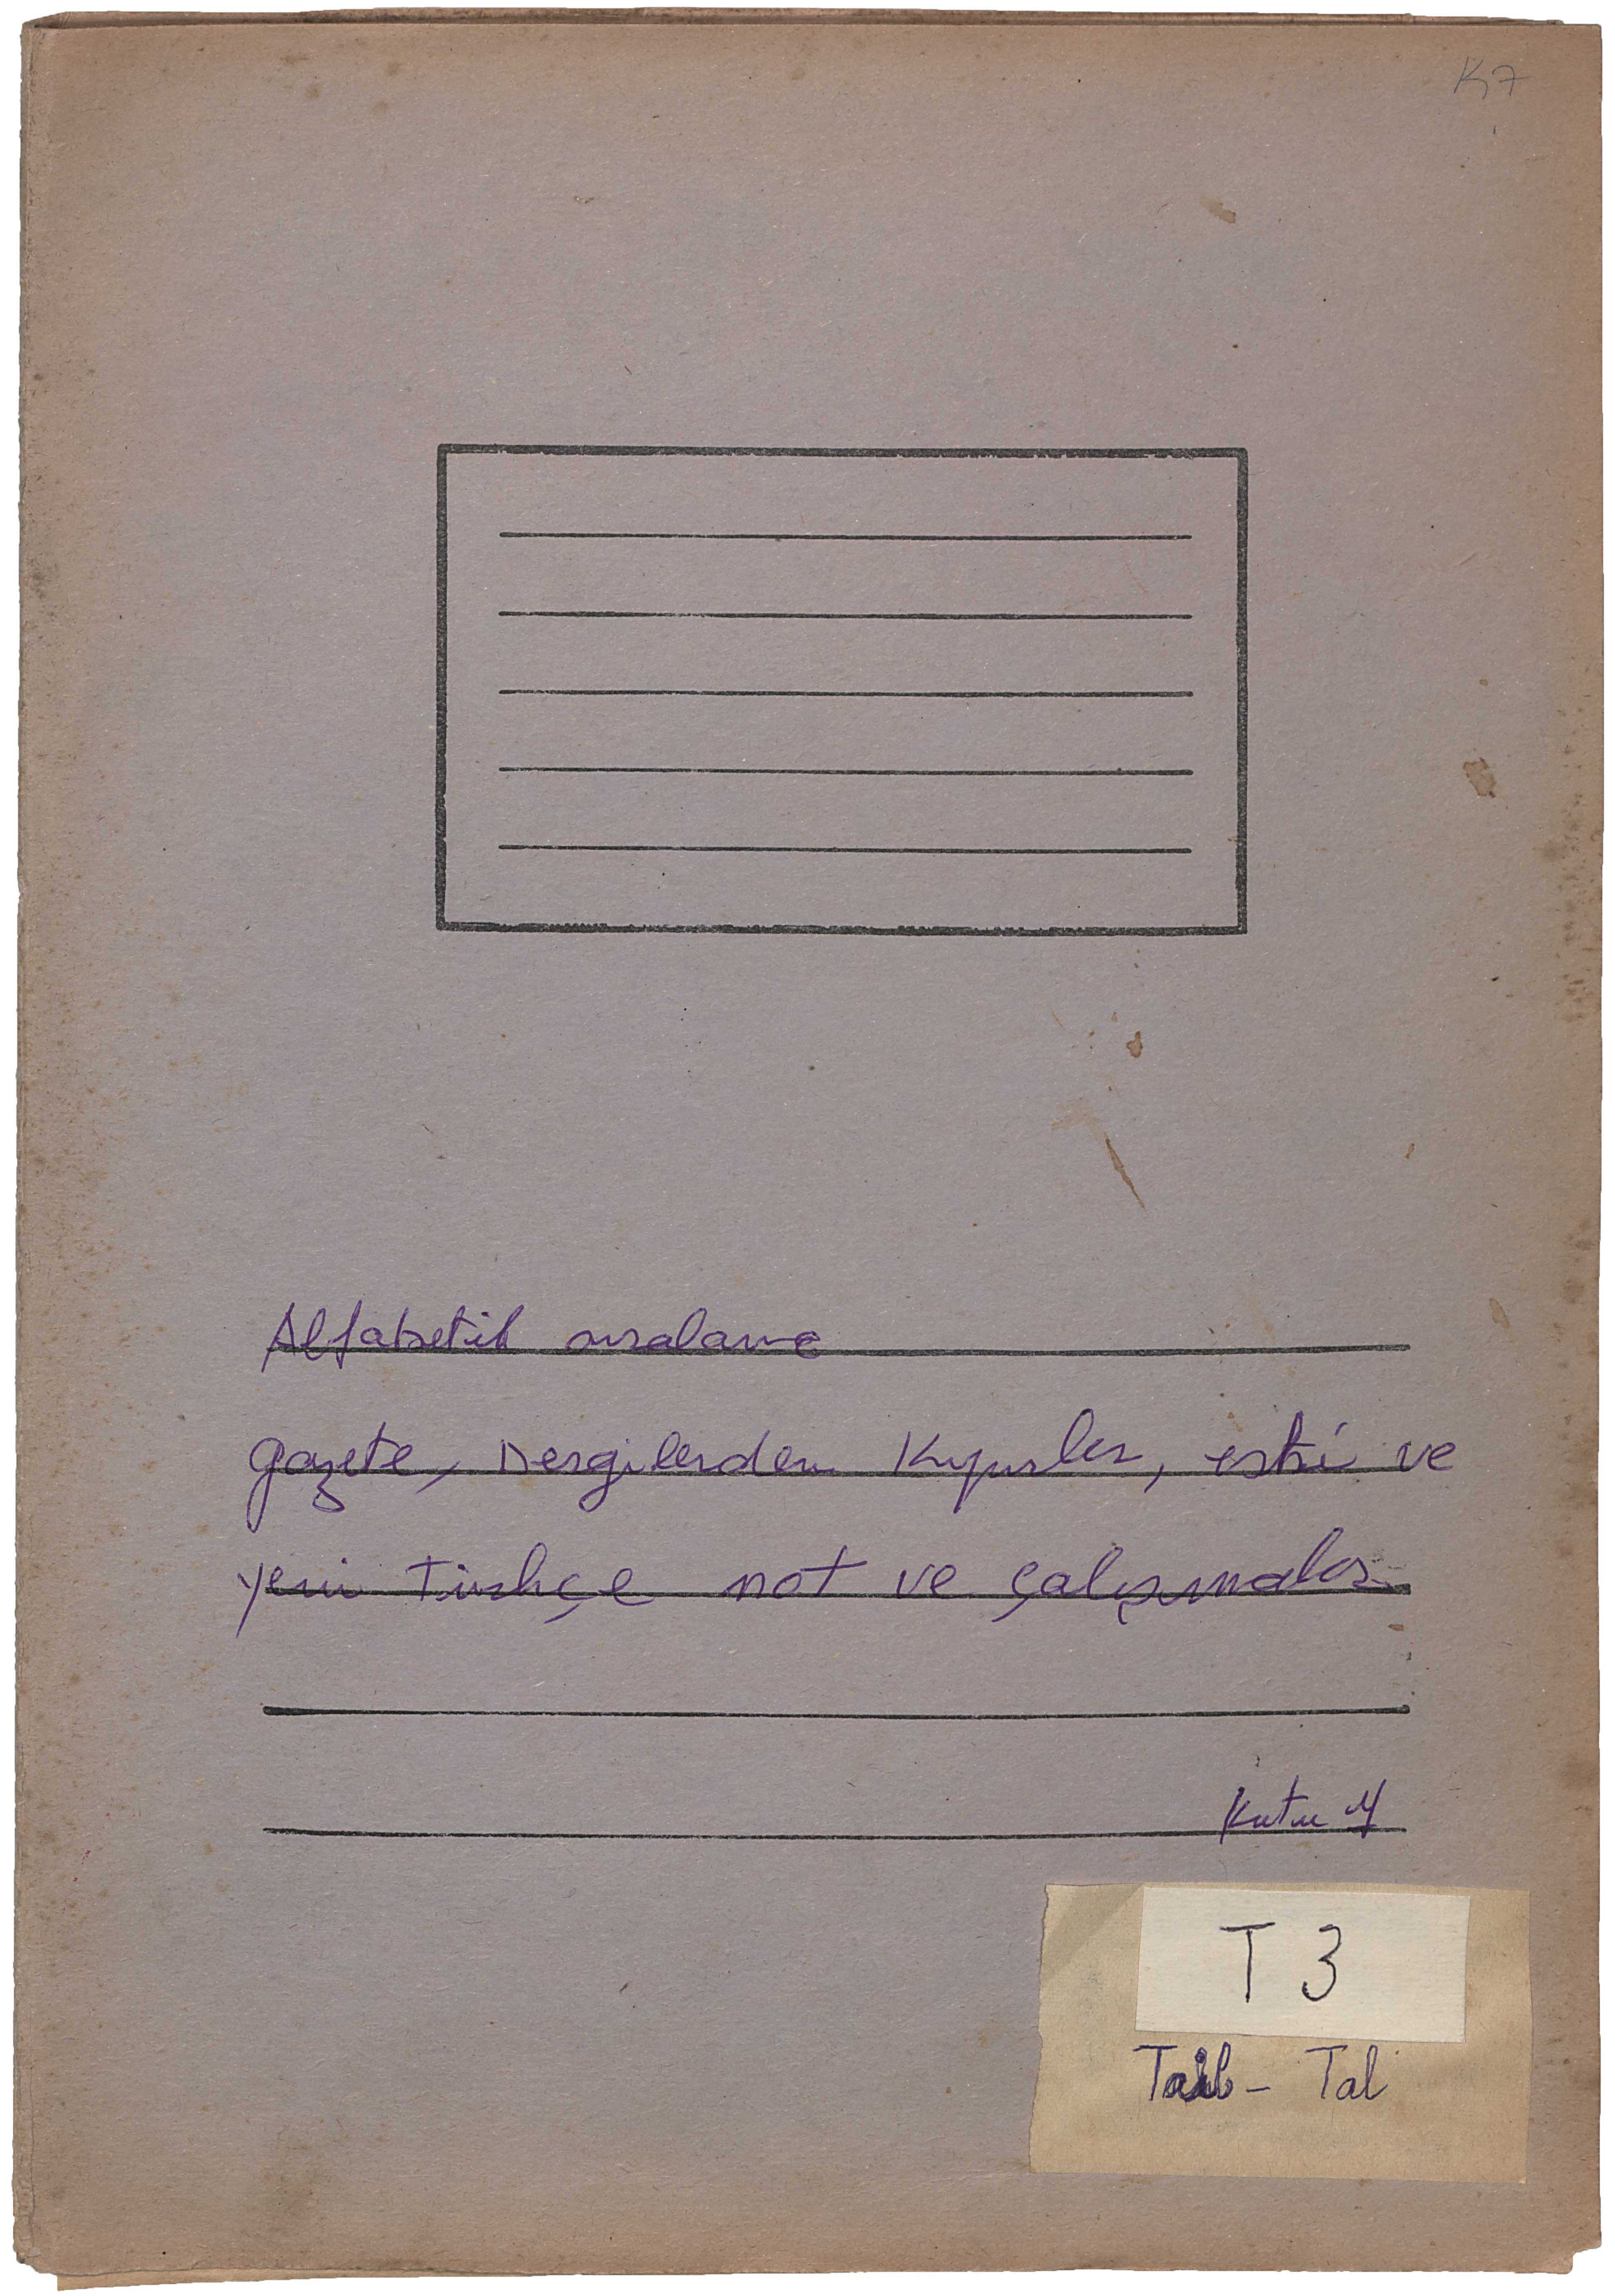 K7
Alfabetik sıralama
gazete, Dergilerden Kupürler, eski ve
yeni Türkçe not ve çalışmalar
Kutu
T 3
Tal